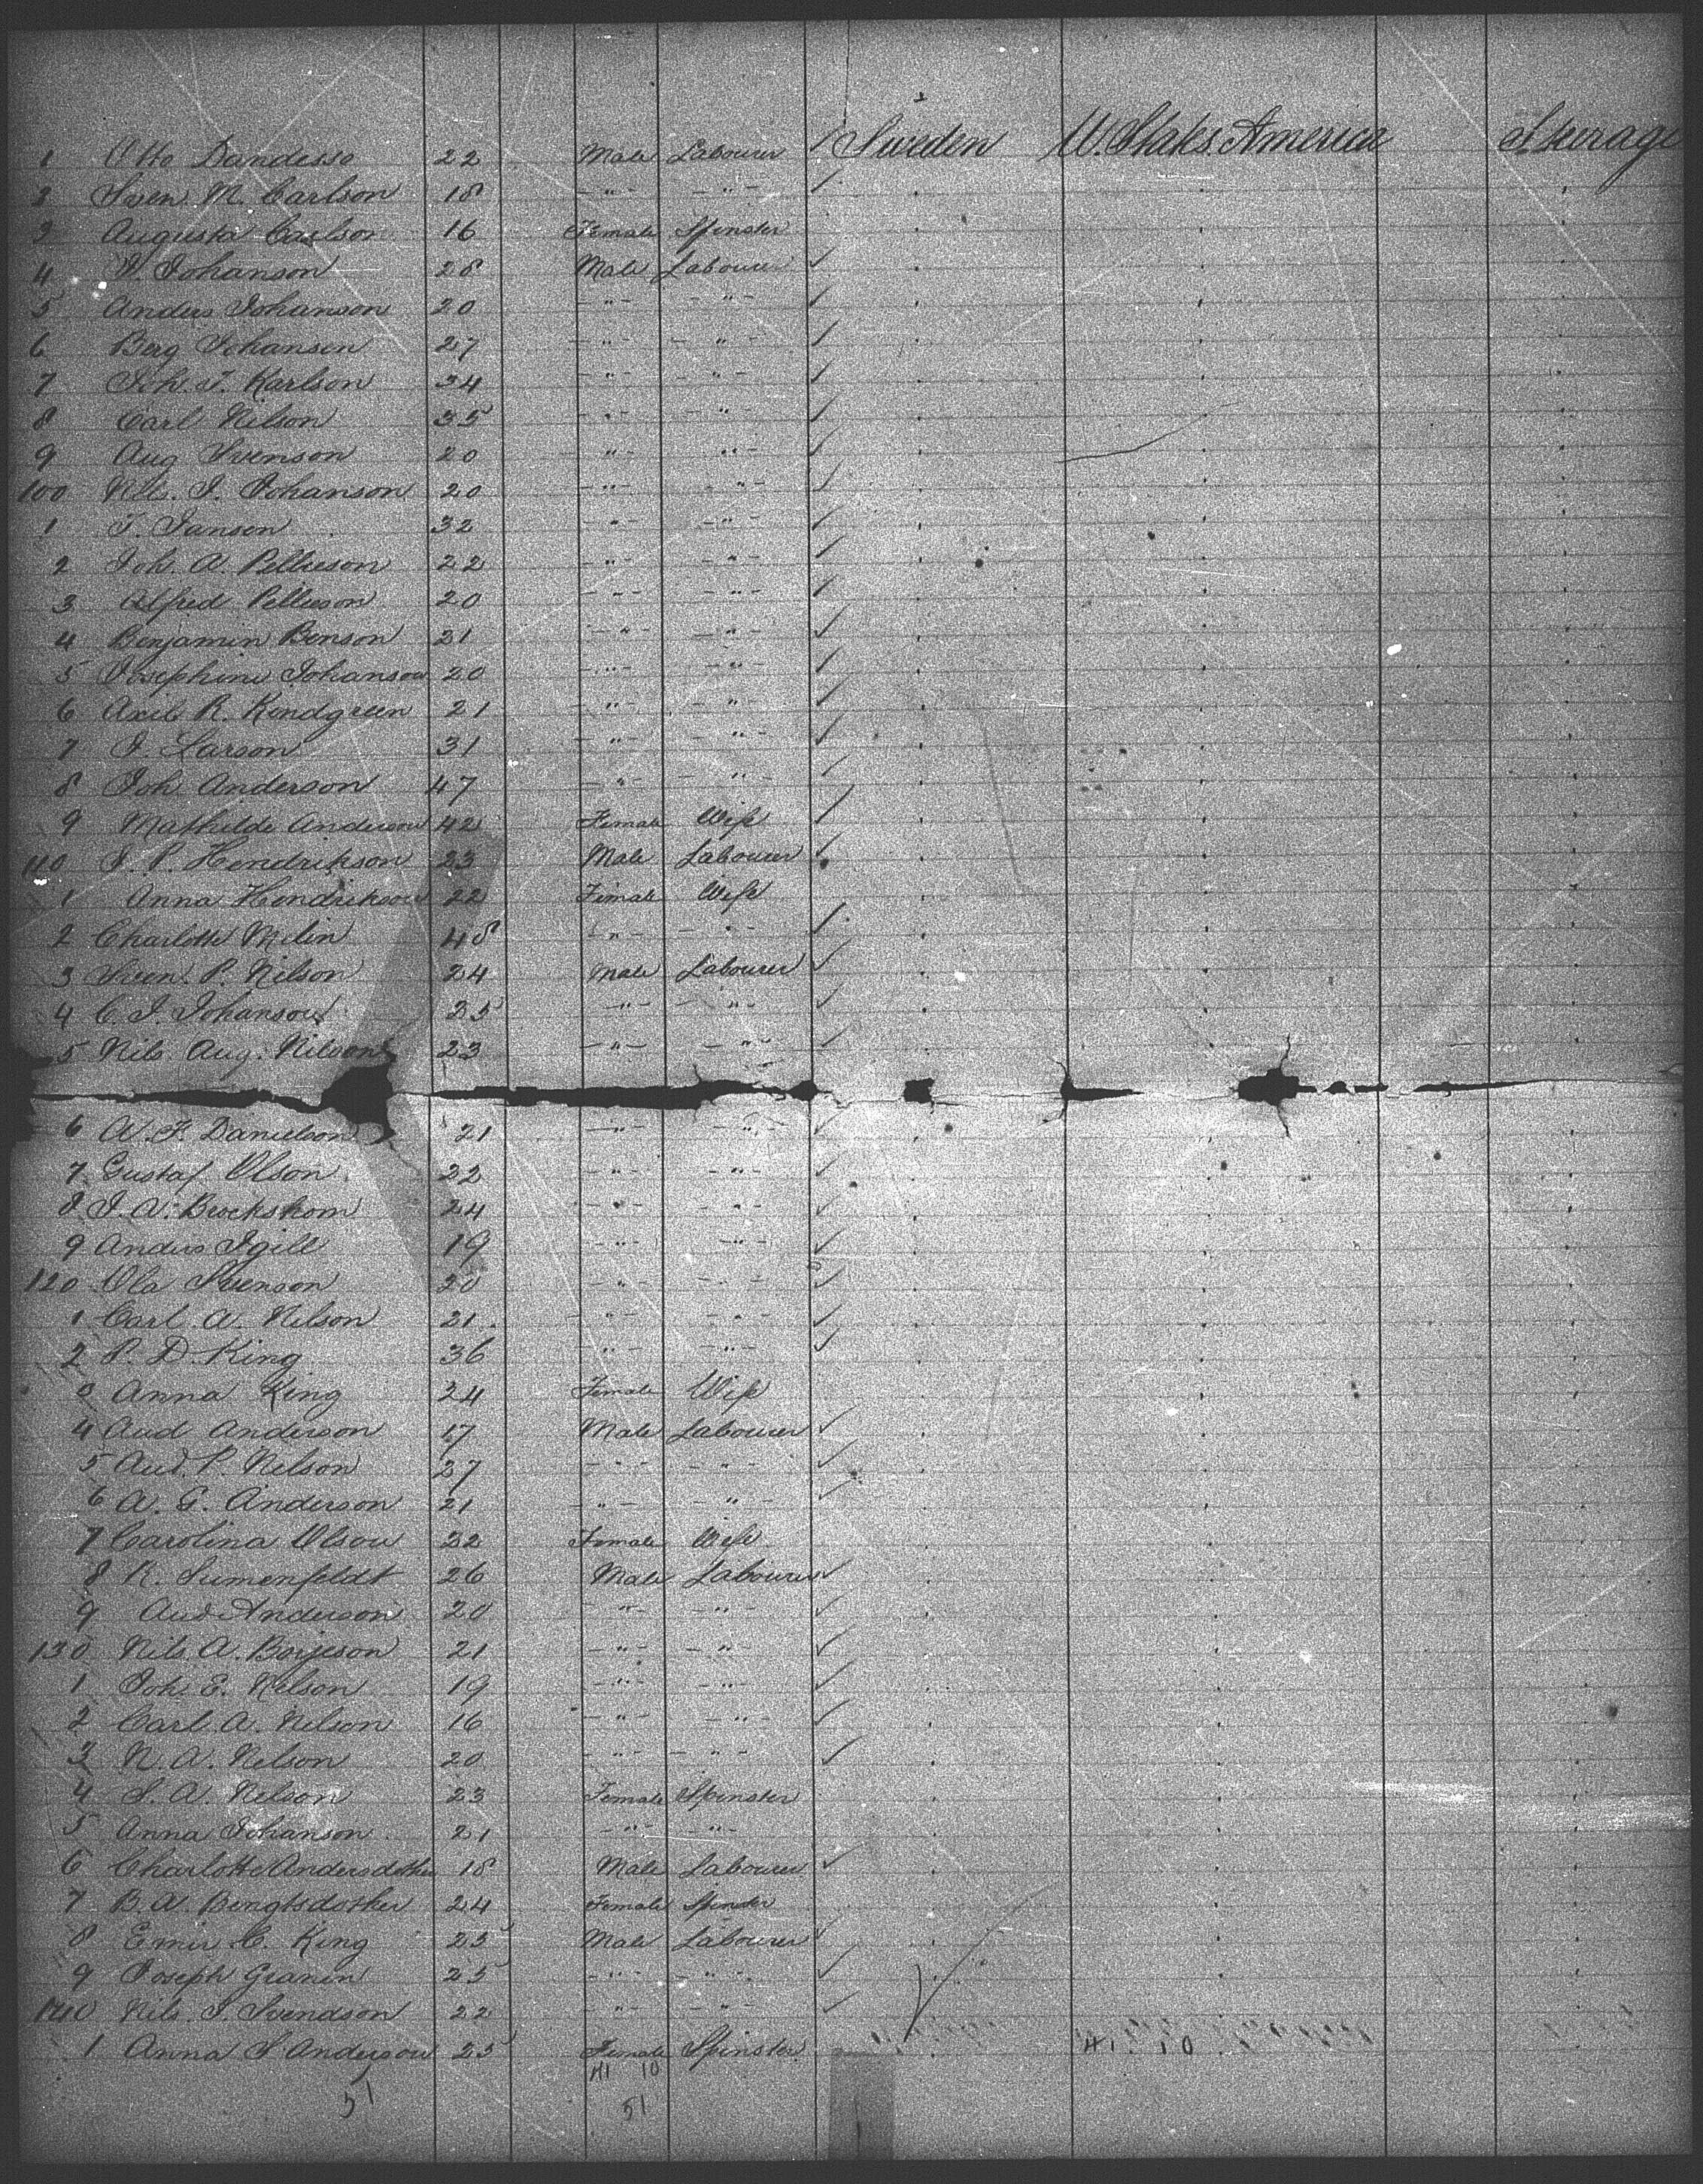 1 Otto Dandesso 22 Male Labourer ✓ Sweden U. States America Steerage
2 Swen M. Carlson 18 -"- -"- ✓
3 Augusta Carlson 16 Female Spinster
4 Johanson 28 Male Labourer ✓
5 Anders Johanson 20 -"- -"- ✓
6 Berg Johanson 27 -"- -"- ✓
7 Joh. J. Karlson 34 -"- -"- ✓
8 Carl Nilson 35 -"- -"- ✓
9 Aug Svenson 20 -"- -"- ✓
100 Nils. J. Johanson 20 -"- -"- ✓
1 J. Janson 32 -"- -"- ✓
2 Joh. A. Pellieson 22 -"- -"- ✓
3 Alfred Pellieson 20 -"- -"- ✓
4 Benjamin Benson 21 -"- -"- ✓
5 Josephine Johanson 20 -"- -"- ✓
6 Axil R. Kindgreen 21 -"- -"- ✓
7 J. Larson 31 -"- -"- ✓
8 Joh Anderson 47 -"- -"- ✓
9 Mathilde Anderson 42 Female Wife ✓
110 J. P. Hendrikson 23 Male Labourer ✓
1 Anna Hendrikson 22 Female Wife
2 Charlotte Melin 48 -"- -"- ✓
3 Sven. P. Nilson 24 Male Labourer ✓
4 C. J. Johanson 25 -"- -"- ✓
5 Nils. Aug. Nilson 23 -"- -"- ✓
6 A. F. Danielson 21 -"- -"- ✓
7 Gustaf Olson 22 -"- -"- ✓
8 J. A. Brockshom 24 -"- -"- ✓
9 Anders Igill 19 -"- -"- ✓
120 Ola Svenson 20 -"- -"- ✓
1 Carl. A. Nelson 21 -"- -"- ✓
2 P. D. King 36 -"- -"- ✓
3 Anna King 24 Female Wife
4 Aud Anderson 17 Male Labourer ✓
5 Aud. P. Nelson 27 -"- -"- ✓
6 A. G. Anderson 21 -"- -"- ✓
7 Carolina Olson 22 Female Wife
8 R. Sumenfeldt 26 Male Labourer ✓
9 Aud Anderson 20 -"- -"- ✓
130 Nils A. Borjeson 21 -"- -"- ✓
1 Joh. E. Nelson 19 -"- -"- ✓
2 Carl. A. Nelson 16 -"- -"- ✓
3 N. A. Nelson 20 -"- -"- ✓
4 S. A. Nelson 23 Female Spinster
5 Anna Johanson 21 -"- -"-
6 Charlotte Andersdother 18 Male Labourer ✓
7 B. A. Bengtsdother 24 Female Spinster
8 Emir C. King 25 Male Labourer ✓
9 Joseph Granin 25 -"- -"- ✓
140 Nils. J. Svendson 22 -"- -"- ✓
1 Anna S Anderson 25 Female Spinster 41 10
41 10
51 51